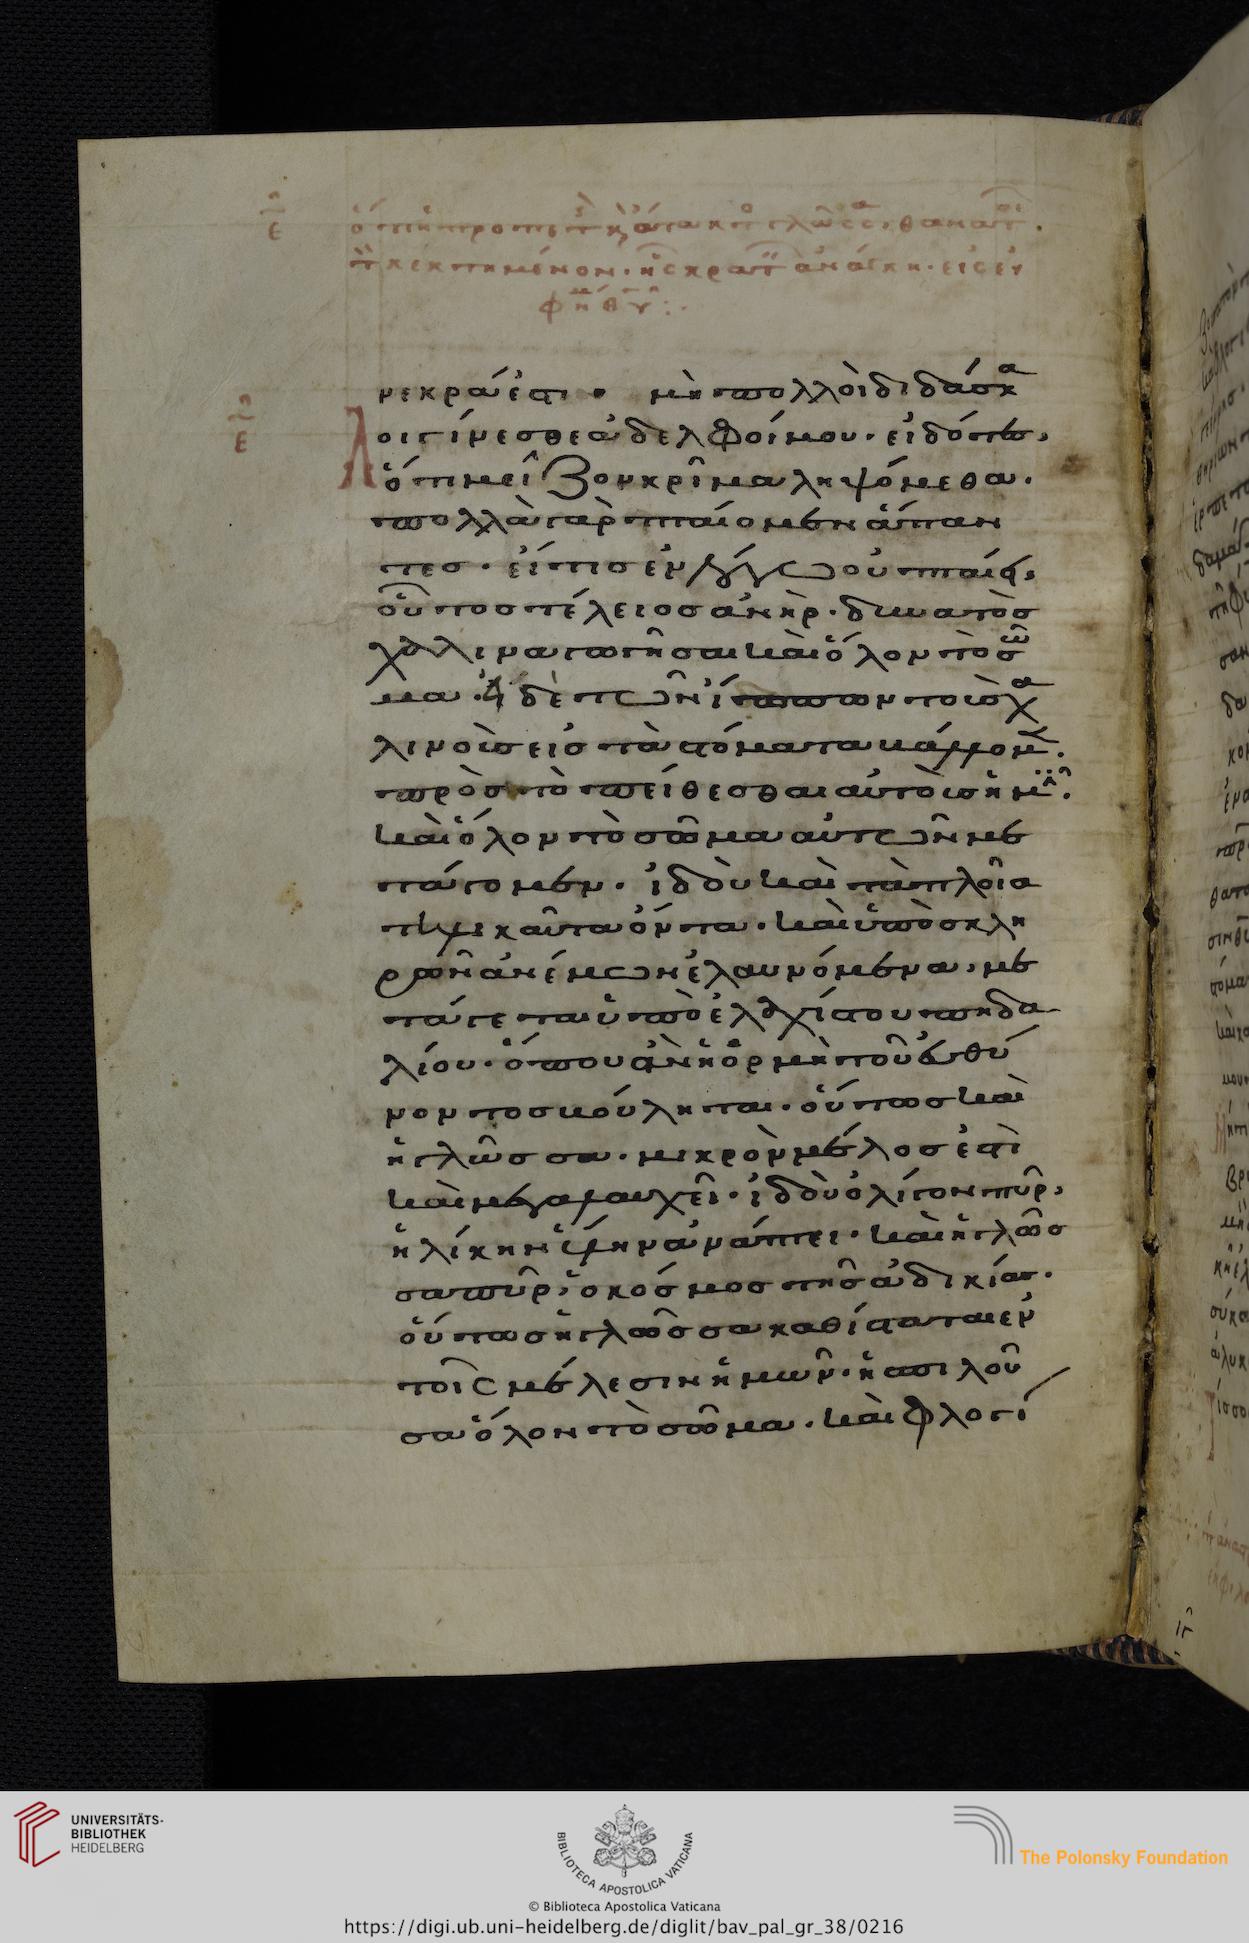 νεκρά ἐστι · μὴ πολλοὶ διδάσκα
λοι γίνεσθε ἀδελφοί μου · εἰδότες,
ὅτι μεῖζον κρῖμα ληψόμεθα ·
πολλὰ γὰρ πταίομεν ἅπαν
τες · εἴ τις ἐν λόγω οὐ πταίει,
οὗτος τέλειος ἀνὴρ · δυνατὸς
χαλιναγωγῆσαι καὶ ὅλον τὸ σῶ
μα · δὲ τῶν ἵππων τοὺς χα
λινοὺς εἰς τὰ στόματα βάλλομεν ·
πρὸς τὸ πείθεσθαι αὐτοὺς ἡμῖν ·
καὶ ὅλον τὸ σῶμα αὐτῶν με
τάγομεν · ἰδοὺ καὶ τὰ πλοῖα
τηλικαῦτα ὄντα · καὶ ὑπὸ σκλη
ρῶν ἀνέμων ἐλαυνόμενα, με
τάγεται ὑπὸ ἐλαχίστου πηδα
λίου · ὅπου ἂν ἡ ὁρμὴ τοῦ εὐθύ
νοντος βούληται · οὕτως καὶ
ἡ γλῶσσα · μικρὸν μέλος ἐστὶ
καὶ μεγαλαυχεῖ · ἰδοὺ ὀλίγον πῦρ,
ἡλίκην ὕλην ἀνάπτει · καὶ ἡ γλῶσ
σα πῦρ, ὁ κόσμος τῆς ἀδικίας ·
οὕτως ἡ γλῶσσα καθίσταται ἐν
τοῖς μέλεσιν ἡμῶν · ἡ σπιλοῦ
σα ὅλον τὸ σῶμα · καὶ φλογί
UNIVERSITÄTS-
BIBLIOTHEK
HEIDELBERG
BIBLIOTECA APOSTOLICA VATICANA
The Polonsky Foundation
© Biblioteca Apostolica Vaticana
https://digi.ub.uni-heidelberg.de/diglit/bav_pal_gr_38/0216